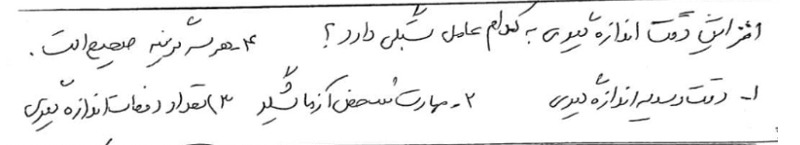 افزایش دقت اندازه گیری به کدام عامل بستگی دارد؟ ۴- هر سه گزینه صحیح است.
۱- دقت وسیله اندازه گیری ۲- مهارت شخص آزمایشگر ۳) تعداد دفعات اندازه گیری